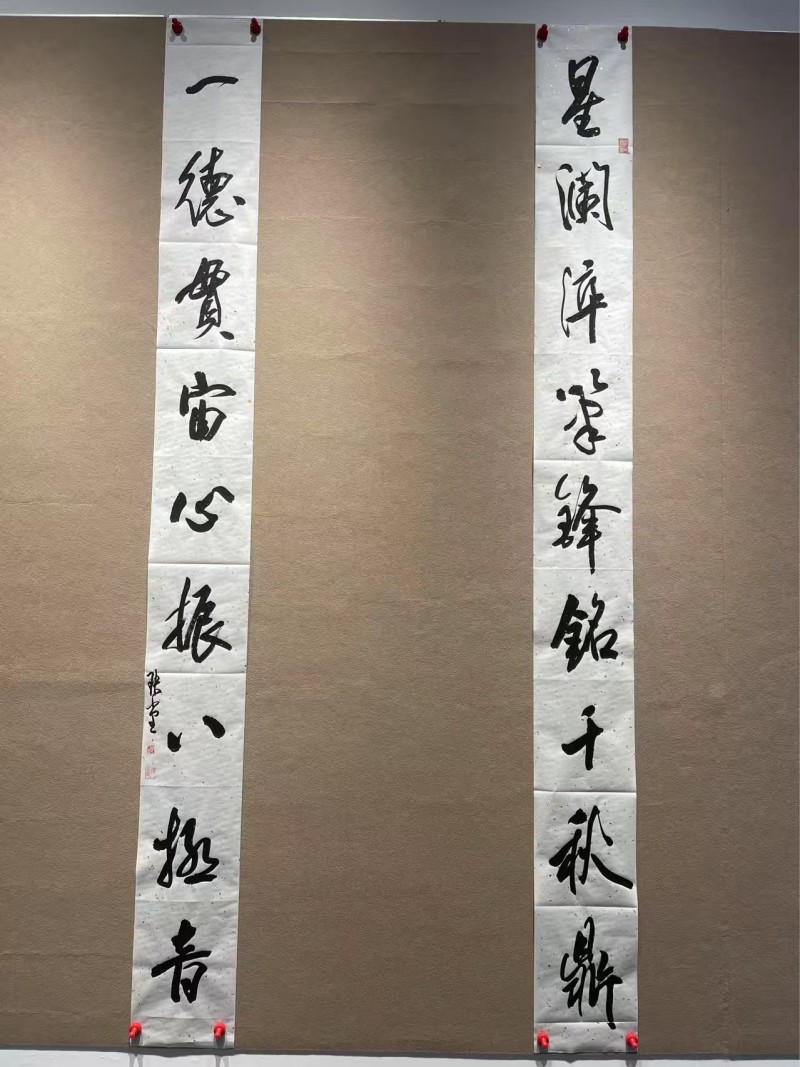 星瀾淬筆鋒銘千秋鼎
一德貫宙心振八極音